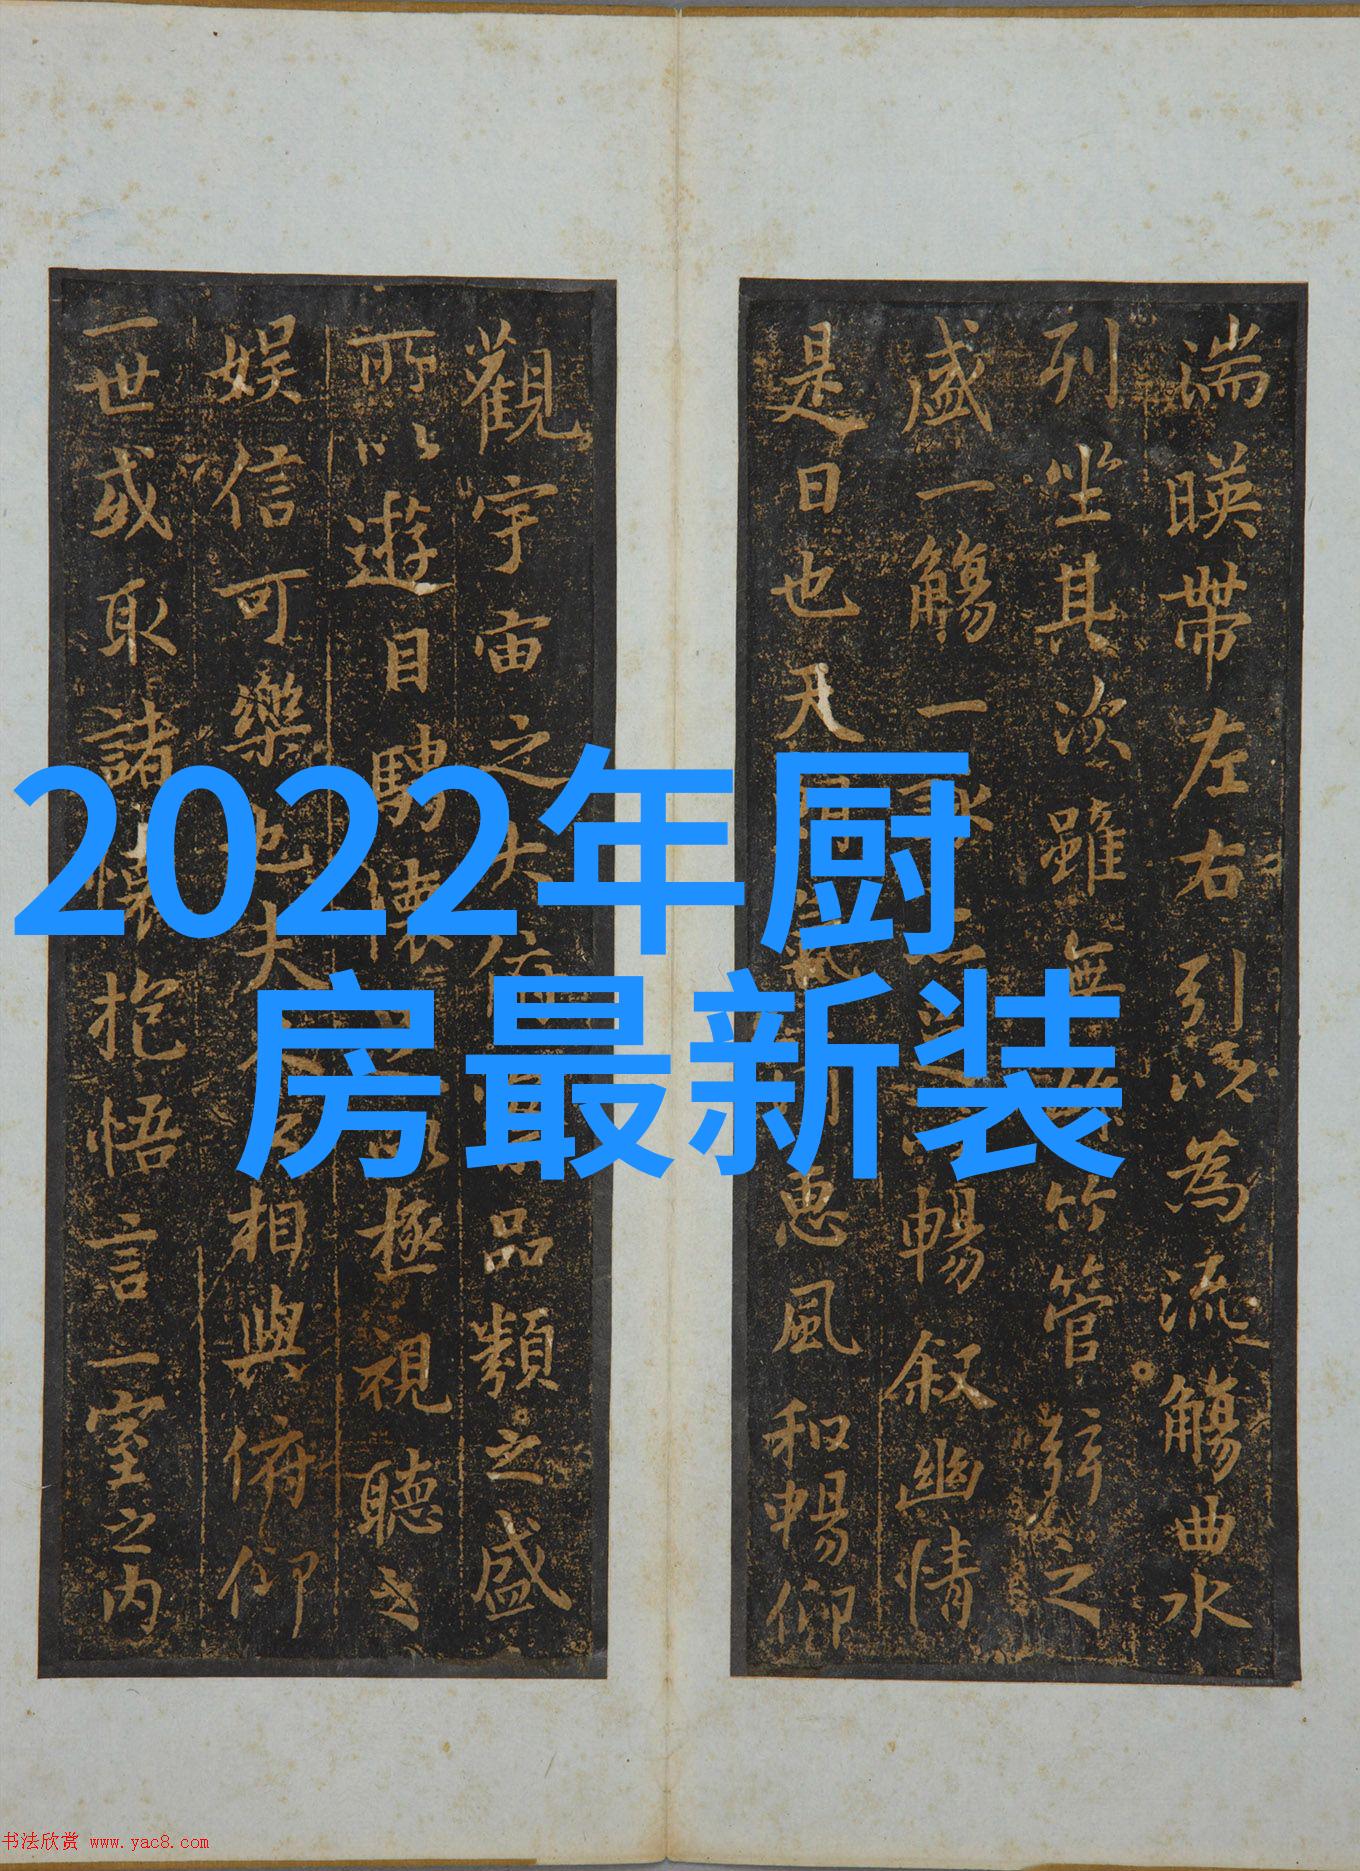 2022年厨
房最新装
湍暎帶左右引以為流觴曲水
列坐其次雖無竹管弦之
盛一觴一暢叙幽情
是日也天惠風和暢仰
觀宇宙之大品類之盛
所以遊目騁懷極視聽之
娱信可樂也夫相與俯仰
一世或取諸懷抱悟言一室之内
书法欣赏 www.yac8.com